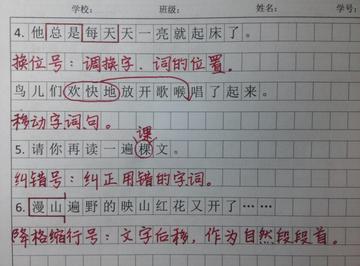 学校： 班级： 姓名： 学号：
4. 他总是每天天一亮就起床了。
换位号：调换字、词的位置。
鸟儿们欢快地放开歌喉唱了起来。
移动字词句。
课
5. 请你再读一遍棵文。
纠错号：纠正用错的字词。
6. 漫山遍野的映山红花又开了……
降格缩行号：文字后移，作为自然段段首。